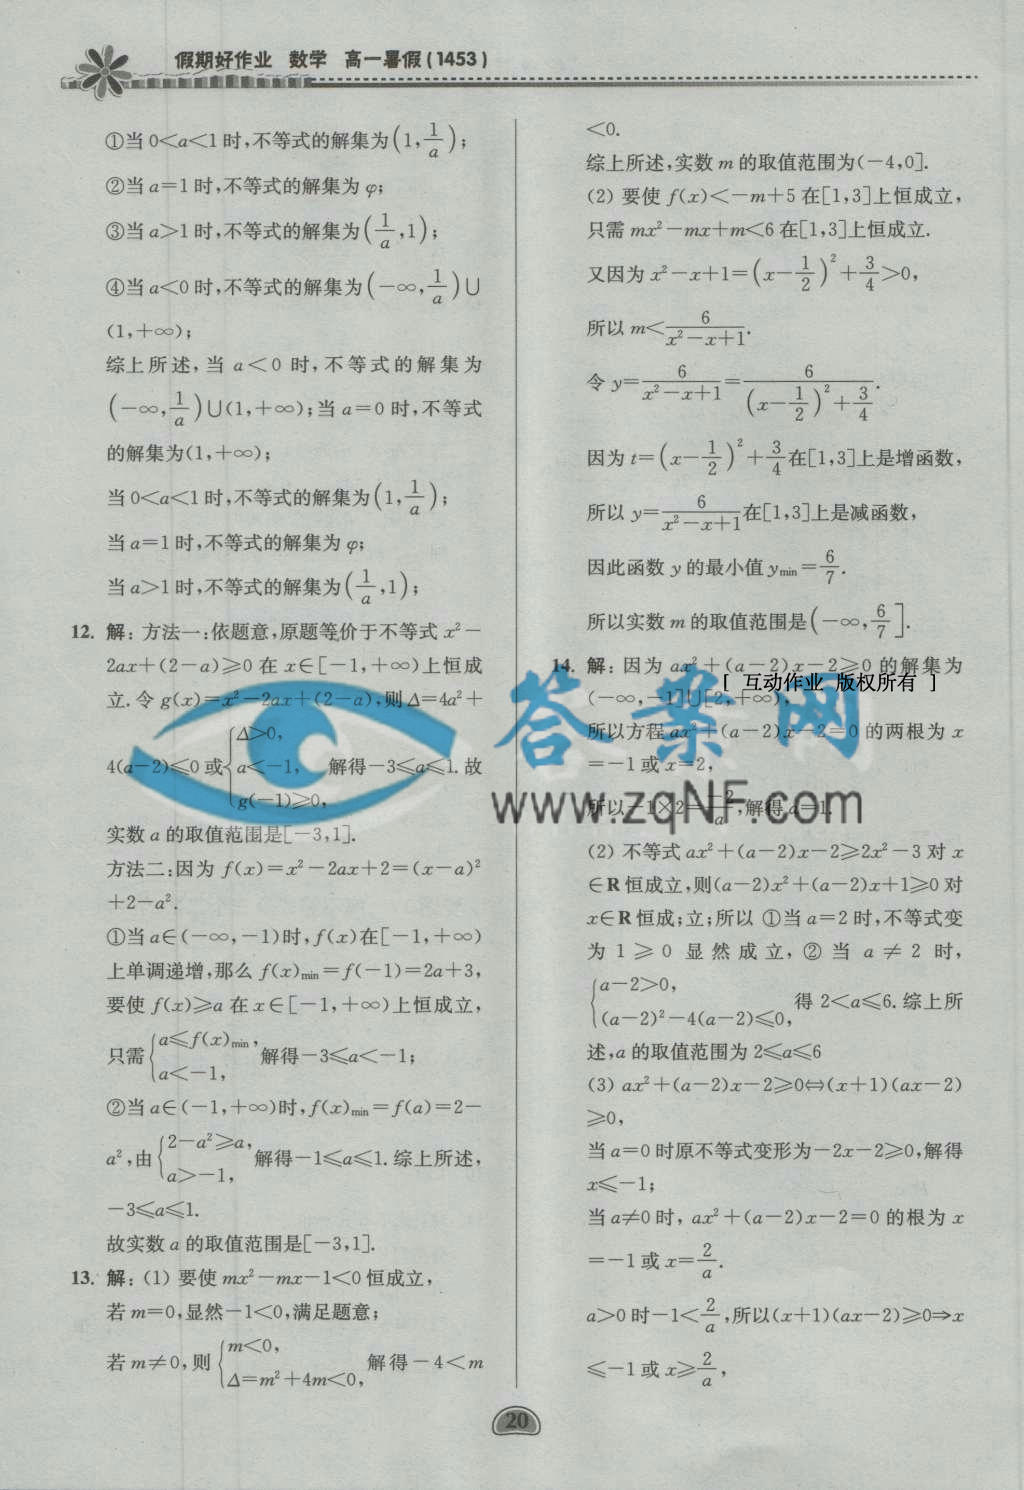 假期好作业 数学 高一暑假(1453)
①当 0<a<1 时,不等式的解集为(1,1/a);
②当 a=1 时,不等式的解集为 φ;
③当 a>1 时,不等式的解集为(1/a,1);
④当 a<0 时,不等式的解集为(-∞,1/a)∪
(1,+∞);
综上所述,当 a<0 时,不等式的解集为
(-∞,1/a)∪(1,+∞);当 a=0 时,不等式
的解集为(1,+∞);
当 0<a<1 时,不等式的解集为(1,1/a);
当 a=1 时,不等式的解集为 φ;
当 a>1 时,不等式的解集为(1/a,1);
12. 解:方法一:依题意,原题等价于不等式 x²-
2ax+(2-a)⩾0 在 x∈[-1,+∞)上恒成
立.令 g(x)=x²-2ax+(2-a),则 Δ=4a²+
4(a-2)⩽0 或{Δ>0, a<-1, g(-1)⩾0, 解得-3⩽a⩽1.故
实数 a 的取值范围是[-3,1].
方法二:因为 f(x)=x²-2ax+2=(x-a)²
+2-a².
①当 a∈(-∞,-1)时,f(x)在[-1,+∞)
上单调递增,那么 f(x)min=f(-1)=2a+3,
要使 f(x)⩾a 在 x∈[-1,+∞)上恒成立,
只需{a⩽f(x)min, a<-1, 解得-3⩽a<-1;
②当 a∈(-1,+∞)时,f(x)min=f(a)=2-
a²,由{2-a²⩾a, a>-1, 解得-1⩽a⩽1.综上所述,
-3⩽a⩽1.
故实数 a 的取值范围是[-3,1].
13. 解:(1) 要使 mx²-mx-1<0 恒成立,
若 m=0,显然-1<0,满足题意;
若 m≠0,则{m<0, Δ=m²+4m<0, 解得-4<m
<0.
综上所述,实数 m 的取值范围为(-4,0].
(2) 要使 f(x)<-m+5 在[1,3]上恒成立,
只需 mx²-mx+m<6 在[1,3]上恒成立.
又因为 x²-x+1=(x-1/2)²+3/4>0,
所以 m<6/(x²-x+1).
令 y=6/(x²-x+1)=6/((x-1/2)²+3/4).
因为 t=(x-1/2)²+3/4在[1,3]上是增函数,
所以 y=6/(x²-x+1)在[1,3]上是减函数,
因此函数 y 的最小值 ymin=6/7.
所以实数 m 的取值范围是(-∞,6/7].
14. 解:因为 ax²+(a-2)x-2⩾0 的解集为
[ 互动作业 版权所有 ]
(-∞,-1]∪[2,+∞),
所以方程 ax²+(a-2)x-2=0 的两根为 x
=-1 或 x=2,
所以-1×2=-2/a,解得 a=1.
答案网
www.zqNF.com
(2) 不等式 ax²+(a-2)x-2⩾2x²-3 对 x
∈R 恒成立,则(a-2)x²+(a-2)x+1⩾0 对
x∈R 恒成;立;所以 ①当 a=2 时,不等式变
为 1⩾0 显然成立,② 当 a≠2 时,
{a-2>0, (a-2)²-4(a-2)⩽0, 得 2<a⩽6.综上所
述,a 的取值范围为 2⩽a⩽6
(3) ax²+(a-2)x-2⩾0⇔(x+1)(ax-2)
⩾0,
当 a=0 时原不等式变形为-2x-2⩾0,解得
x⩽-1;
当 a≠0 时, ax²+(a-2)x-2=0 的根为 x
=-1 或 x=2/a.
a>0 时-1<2/a,所以(x+1)(ax-2)⩾0⇒x
⩽-1 或 x⩾2/a,
20